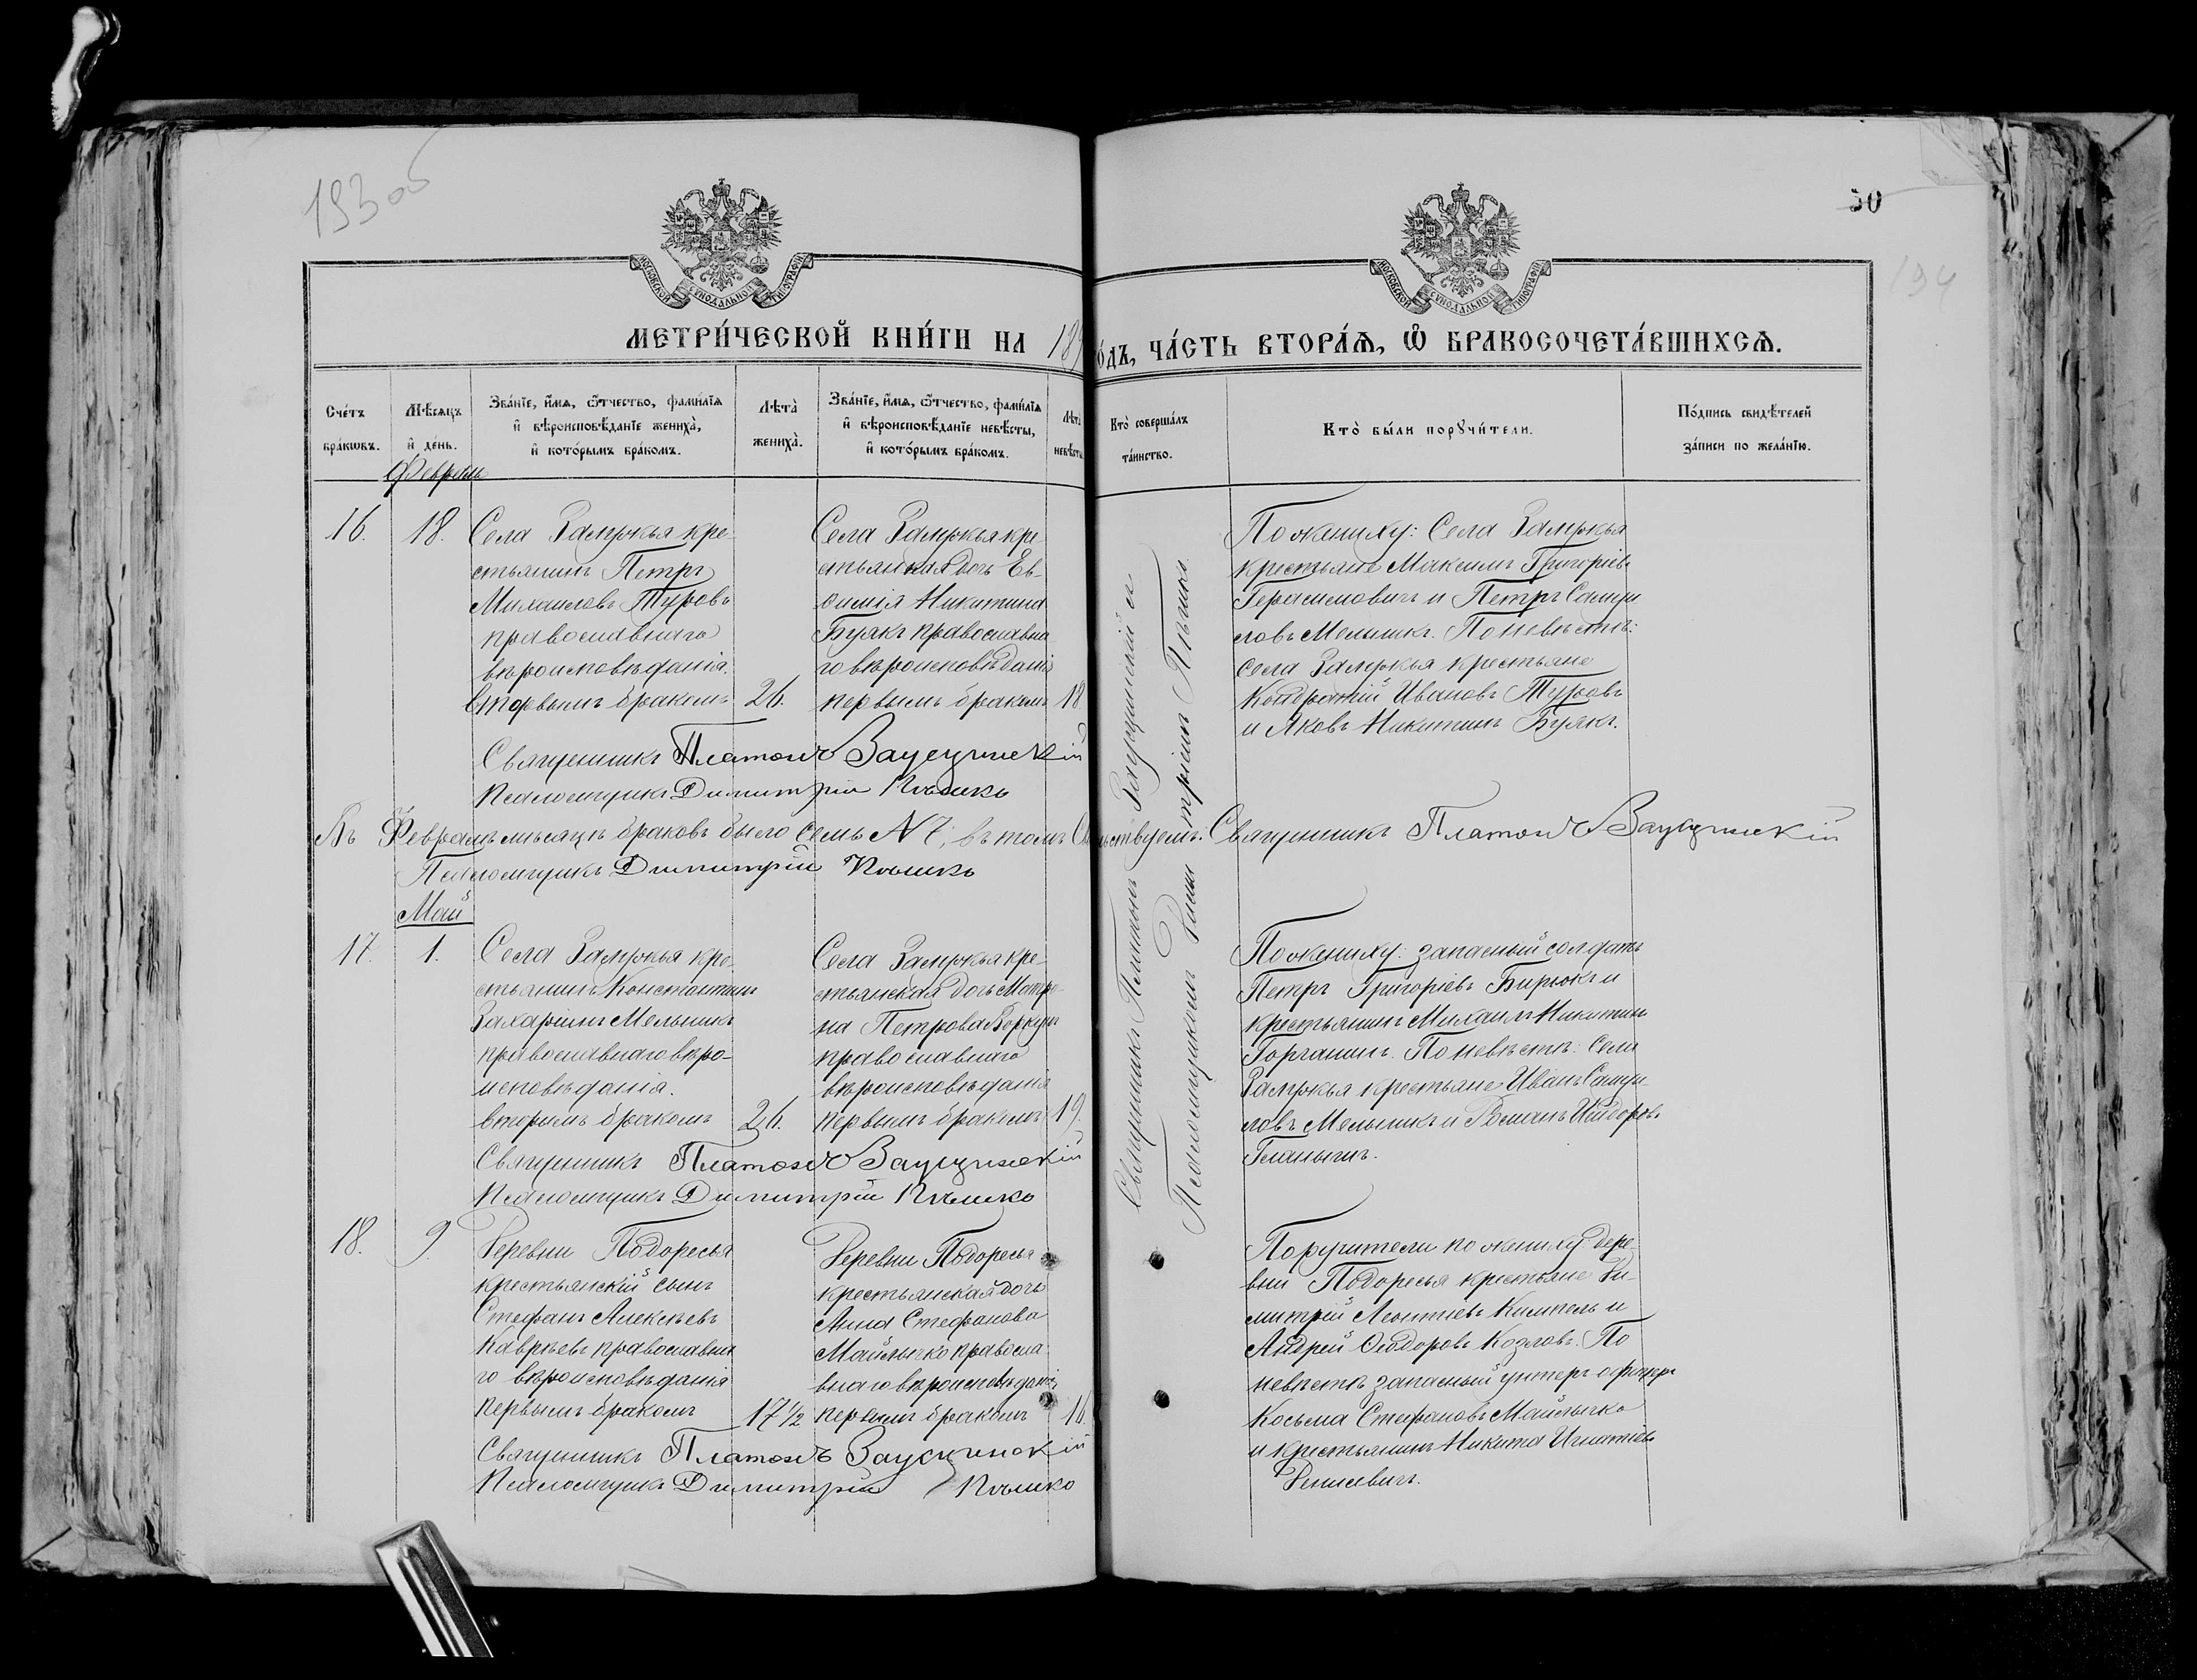 193 об
50
194
МОСКОВСКОЙ СѴНОДАЛЬНОЙ ТИПОГРАФІИ
МОСКОВСКОЙ СѴНОДАЛЬНОЙ ТИПОГРАФІИ
МЕТРИ́ЧЕСКОЙ КНИ́ГИ НА 189
О́ДЪ, ЧА́СТЬ ВТОРА́Ѧ, Ѽ БРАКОСОЧЕТА́ВШИХСѦ.
Сче́тъ
бра́кѡвъ.
Мѣ́сѧцъ
и҆ де́нь.
Зва́нїе, и҆́мѧ, ѻ҆́тчество, фами́лїѧ
и҆ вѣроисповѣ́данїе жениха̀,
и҆ кото́рымъ бра́комъ.
Лѣта̀
жениха̀.
Зва́нїе, и҆́мѧ, ѻ҆́тчество, фами́лїѧ
и҆ вѣроисповѣ́данїе невѣ́сты,
и҆ кото́рымъ бра́комъ.
Лѣта̀
невѣ́сты
Кто̀ соверша́лъ
та́инство.
Кто̀ бы́ли порꙋчи́тели.
По́дпись свидѣ́телей
за́писи по жела́нїю.
Февраль
16.
18.
Села Замужья кре-
стьянинъ Петръ
Михаиловъ Туровъ
православнаго
вѣроисповѣданія.
вторымъ бракомъ
26.
Села Замужья кре-
стьянская дочь Ев-
фимія Никитина
Буякъ православна-
го вѣроисповѣданія
первымъ бракомъ
18.
По жениху: Села Замужья
крестьяне Максимъ Григоріевъ
Герасимовичъ и Петръ Самуи
ловъ Мельникъ. По невѣстѣ:
села Замужья крестьяне
Кондратій Ивановъ Туровъ
и Яковъ Никитинъ Буякъ.
Священникъ Платонъ
Псаломщикъ Димитрій
Въ Февралѣ мѣсяцѣ браковъ было семь № 7, въ томъ свидѣтельствуемъ: Священникъ Платонъ
Псаломщикъ Димитрій
Май
17.
1.
Села Замужья кре-
стьянинъ Константинъ
Захаріинъ Мельникъ
православнаго вѣро-
исповѣданія.
вторымъ бракомъ
26.
Села Замужья кре-
стьянская дочь Матро-
на Петрова
православнаго
вѣроисповѣданія
первымъ бракомъ
19.
По жениху: запасный солдатъ
Петръ Григоріевъ Бирюкъ и
крестьянинъ Михаилъ Никитинъ
По невѣстѣ: Села
Замужья крестьяне Иванъ Самуи
ловъ Мельникъ и Романъ Исидоровъ
Священникъ Платонъ
Псаломщикъ Димитрій
18.
9.
Деревни Подоресья
крестьянскій сынъ
Стефанъ Алексѣевъ
православна
го вѣроисповѣданія
первымъ бракомъ
17 1/2
Деревни Подоресья
крестьянская дочь
Анна Стефанова
Майсычко правосла-
внаго вѣроисповѣданія
первымъ бракомъ
16.
Поручители по жениху: дере-
вни Подоресья крестьяне Ди-
митрій Леонтіевъ и
Андрей Ѳеодоровъ Козловъ. По
невѣстѣ запасный унтеръ офицеръ
Косьма Стефановъ Майсычко
и крестьянинъ Никита Игнатіевъ
Денисевичъ.
Священникъ Платонъ
Псаломщикъ Димитрій